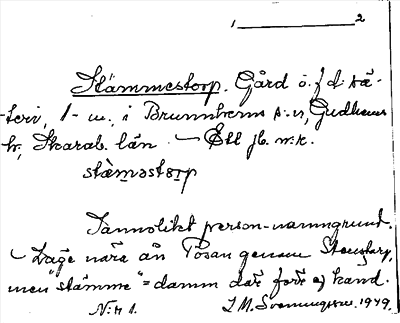 1 2
Stämmestorp. Gård o. f. d. sä-
teri, 1 m. i Brunnhems s:n, Gudhems
hr, Skarab. län. – Ett jb. nr.
stæməstɔrp
Sannolikt person-namngrund.
– Läge nära ån Pösan genom Stenstorp,
men "stämme" = damm där förr ej känd.
N:r 1. I. M. Svenningsson. 1949.